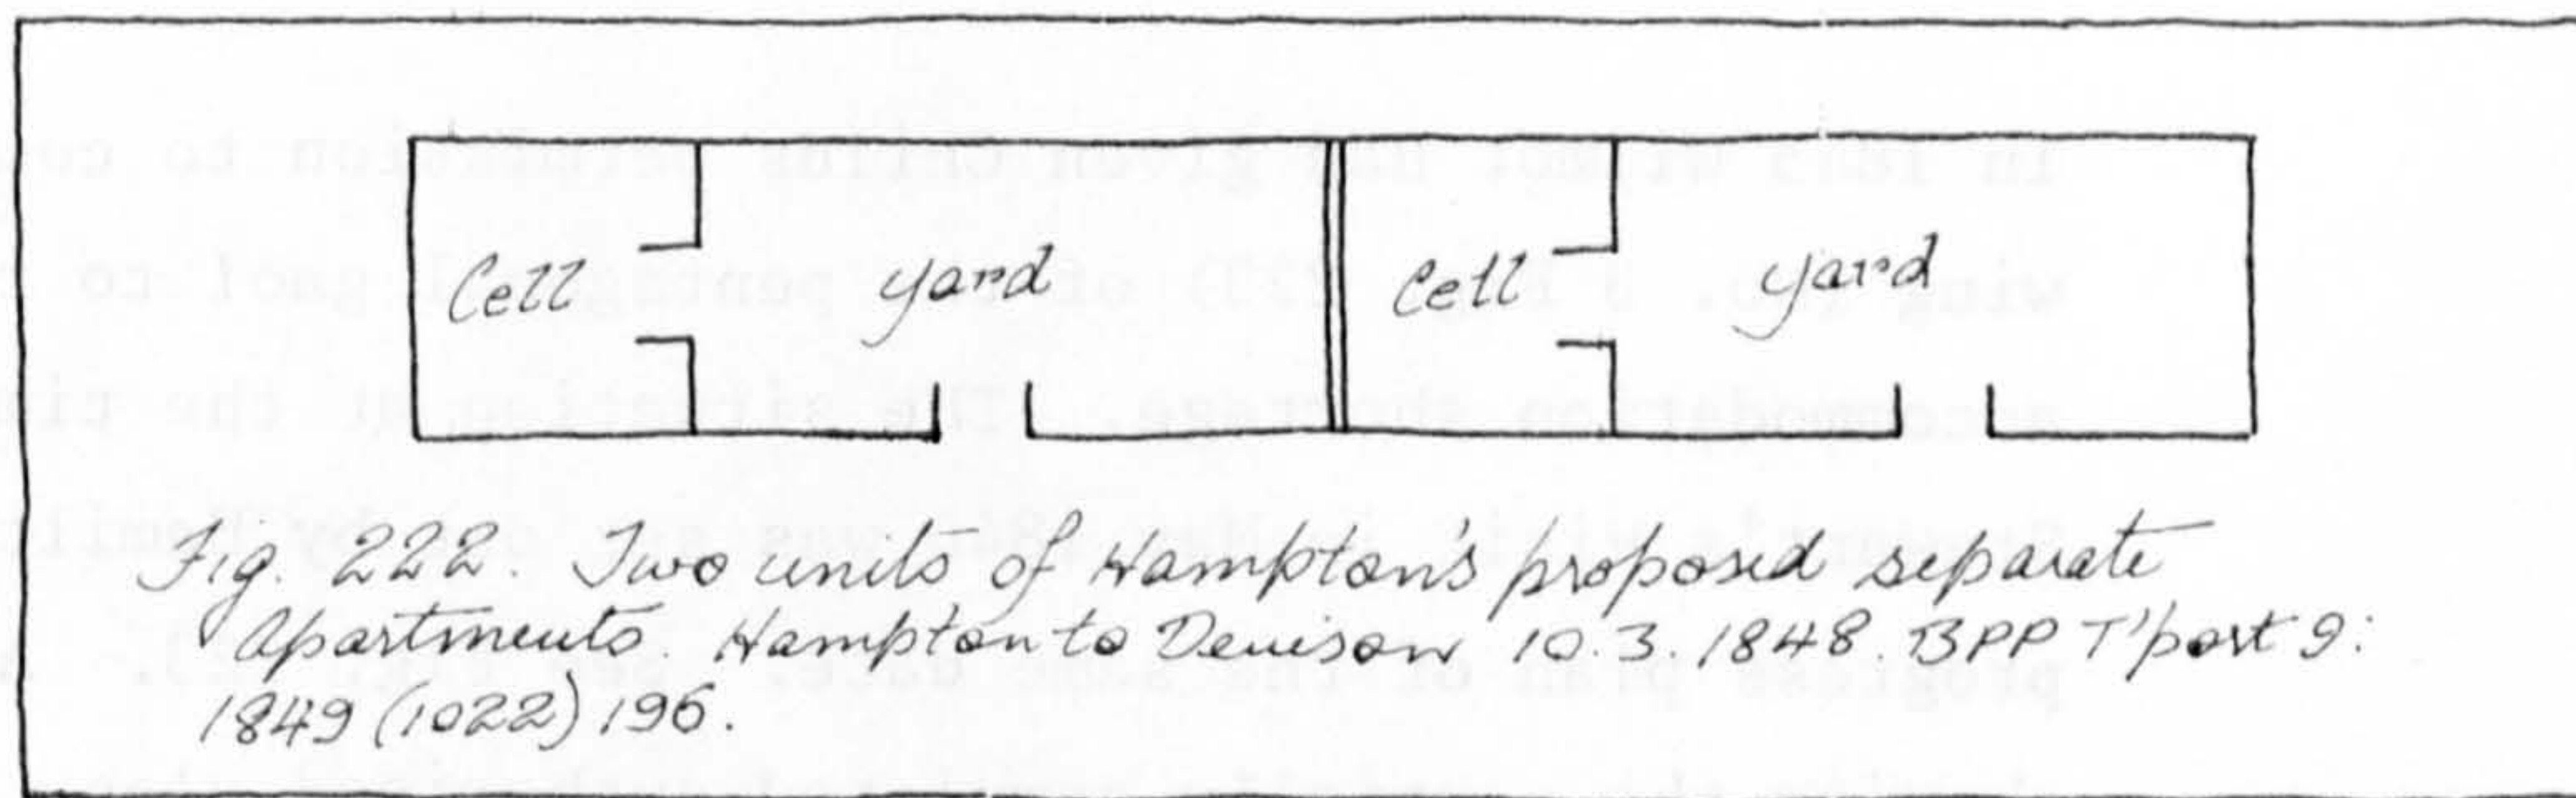 Cell yard Cell yard
Fig. 222. Two units of Hampton's proposed separate
Apartments. Hampton to Denison 10.3.1848. BPP T'port 9:
1849 (1022) 196.